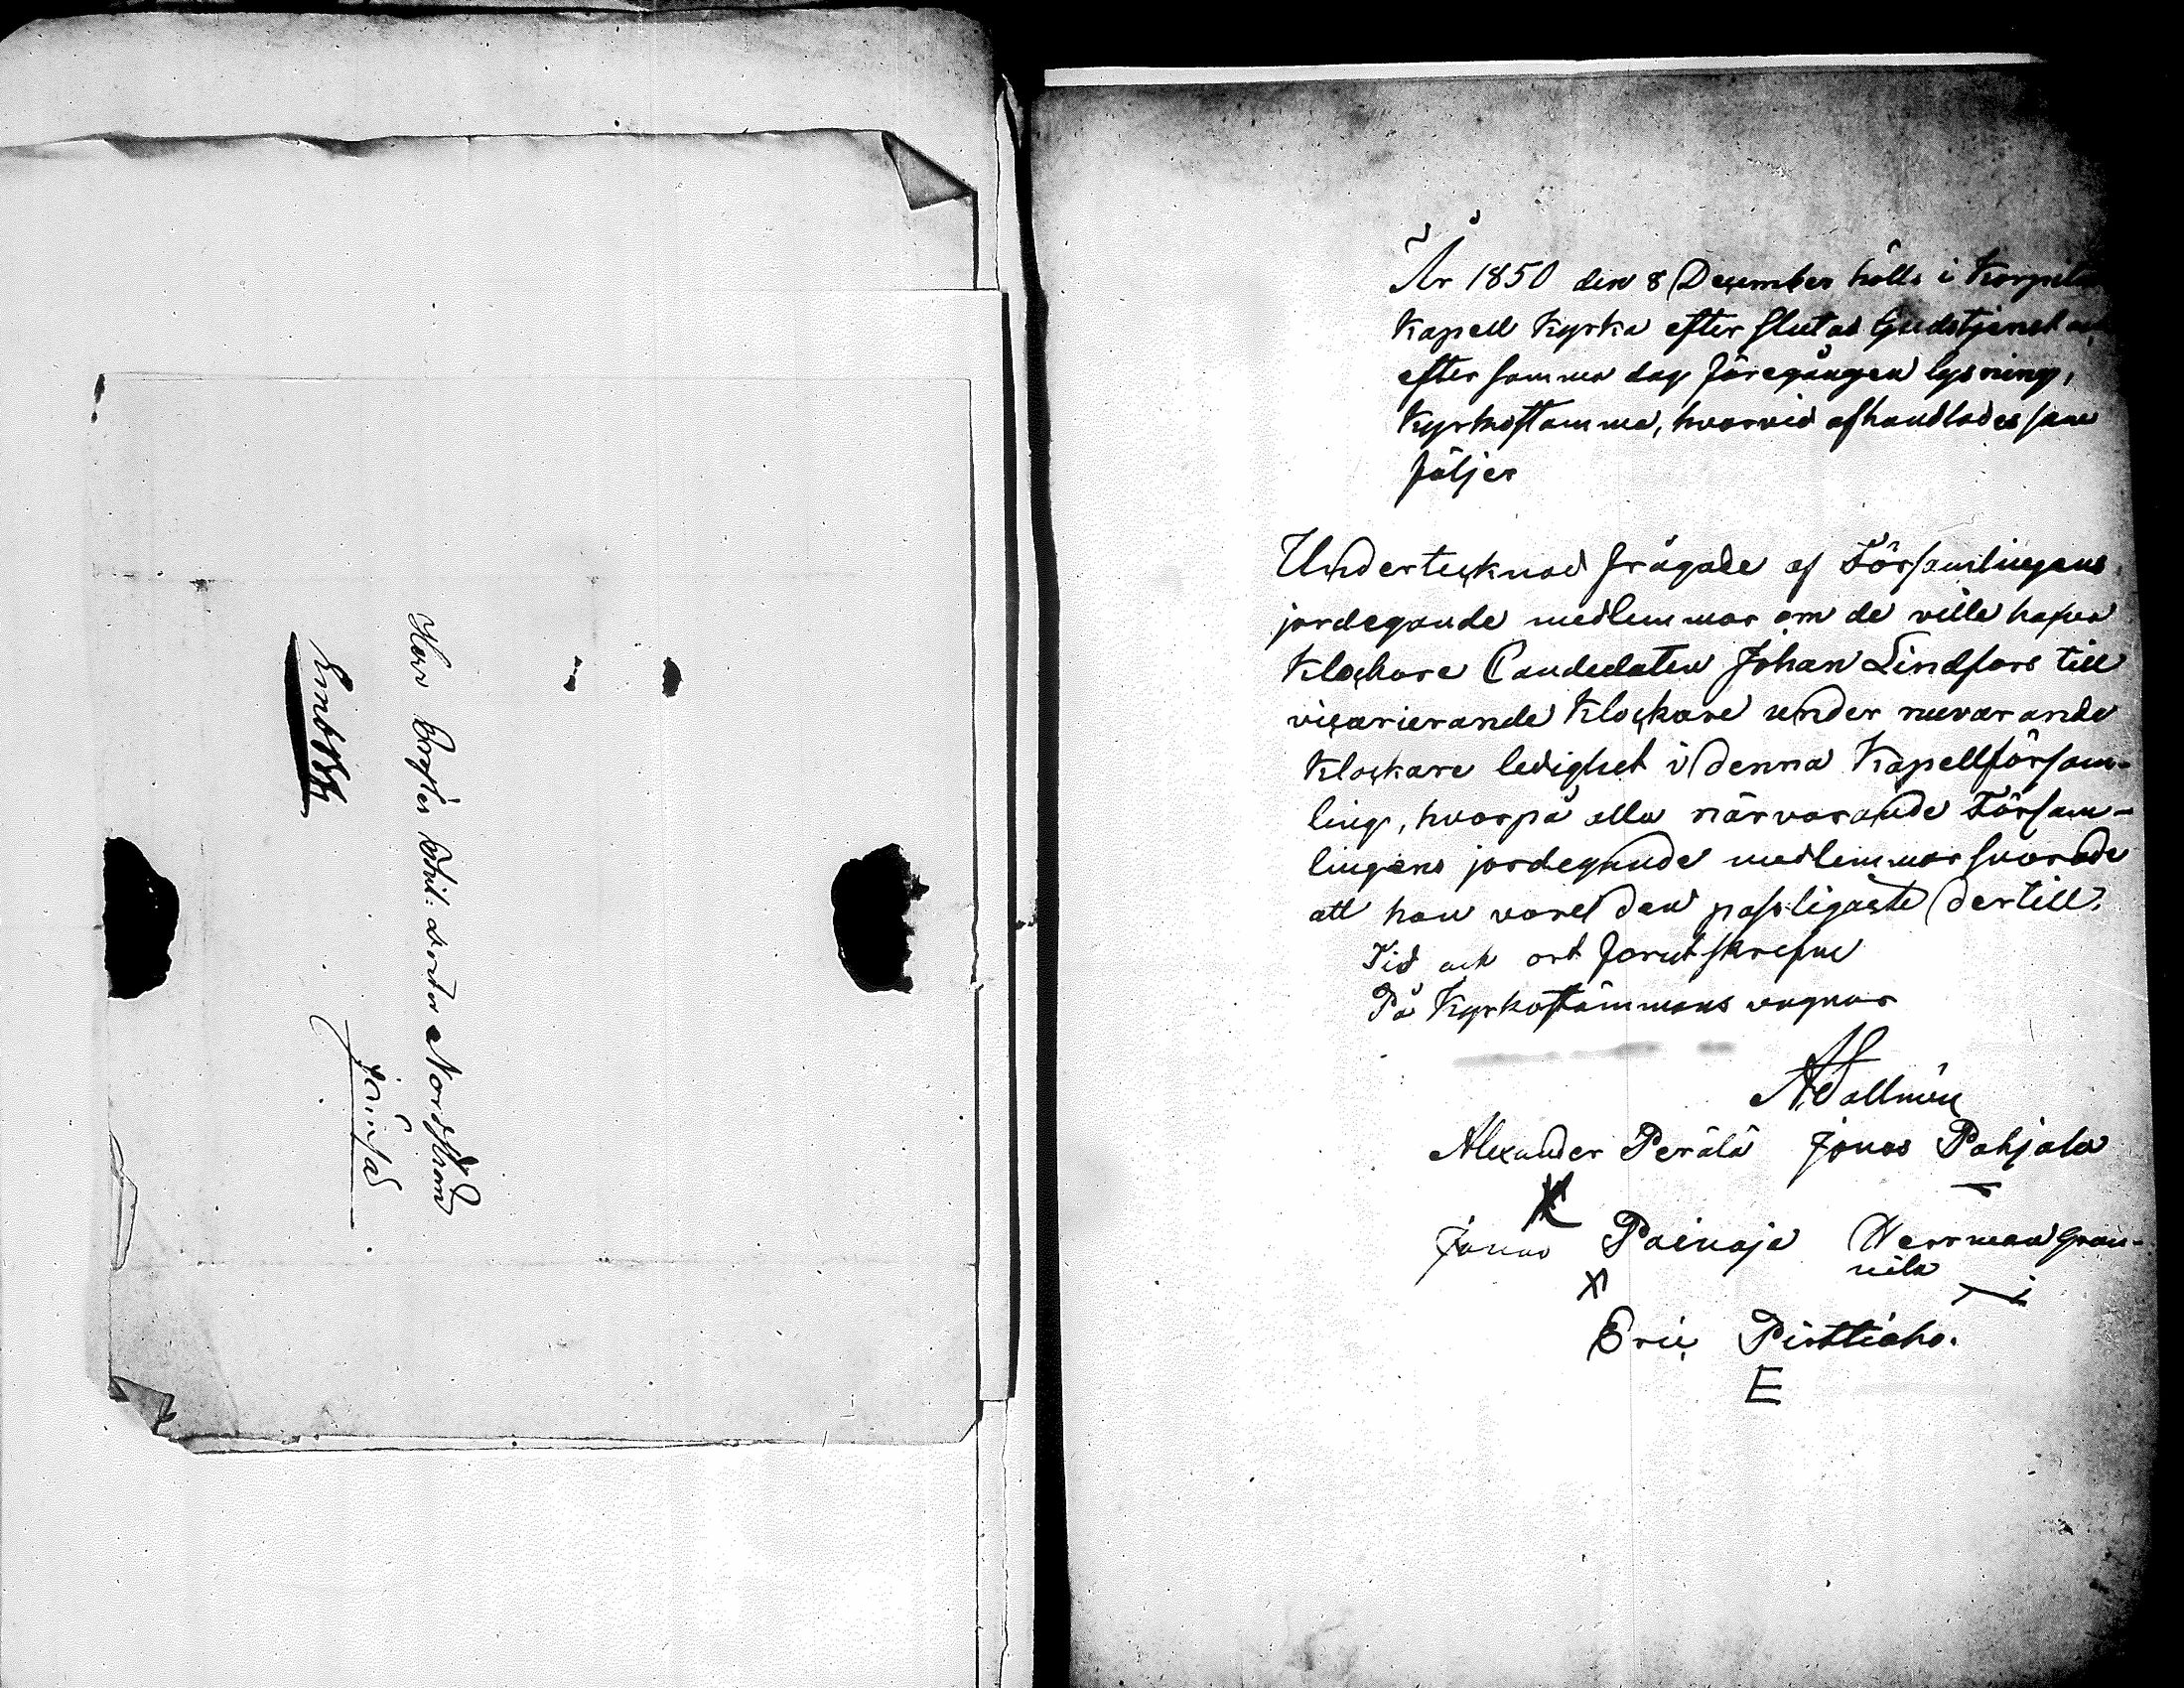 Herr Prosten Phil: doctor Nordstrund
Jemte 
År 1850 den 8 December hölls i Korpela
Kapell Kyrka efter slutad Gudstjenst och
efter samma dag föregången lysning,
Kyrkostämma, hvarvid afhandlades som
följer
Undertecknad frågade af Församlingens
jordegande medlemmar om de ville hafva
Klockare Candidaten Johan Lindfors till
vicarierande Klockare under nuvarande
Klockare ledighet i denna Kapellförsam-
ling, hvarpå alla närvarande Försam-
lingens jordegande medlemmar svarade
att han vore den passligaste dertill.
Tid och ort förutskrefne
På Kyrkostämmans vägnar
Alexander Perälä Jonas Pohjala
Jonas Painaja Herrman Gran-
nila
Eric Pirttiaho.
E